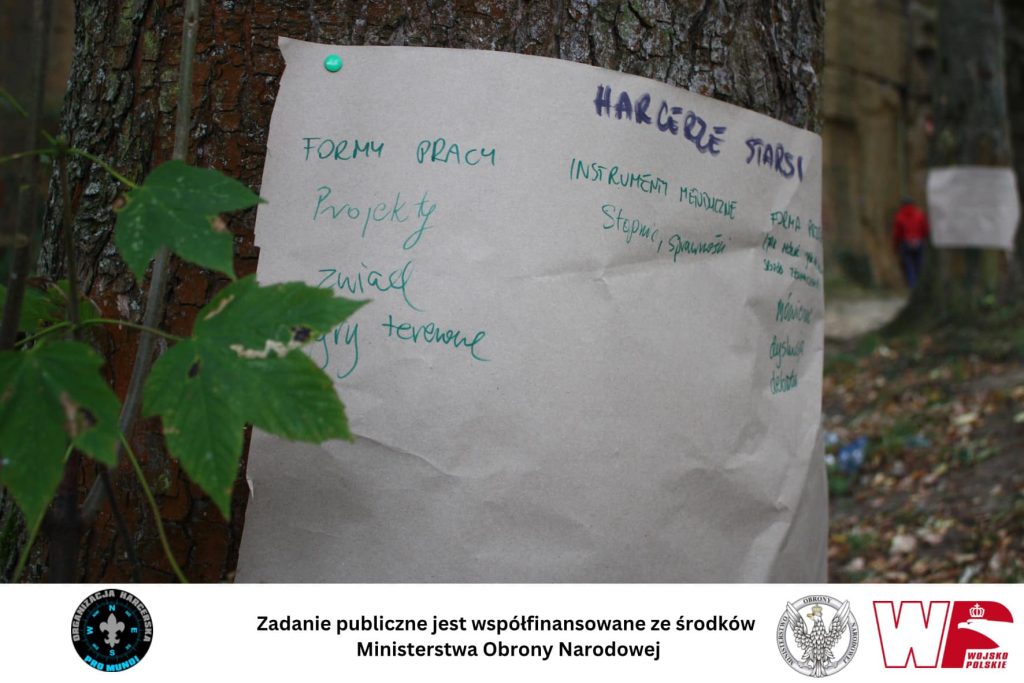 HARCERZE STARSI
FORMY PRACY
Projekty
zwiad
gry terenowe
INSTRUMENTY
Stopnie, sprawności
FORMA
dyskusja
ORGANIZACJA HARCERSKA
N
W E
S
PRO MUNDI
Zadanie publiczne jest współfinansowane ze środków
Ministerstwa Obrony Narodowej
MINISTERSTWO OBRONY NARODOWEJ
WP
WOJSKO
POLSKIE